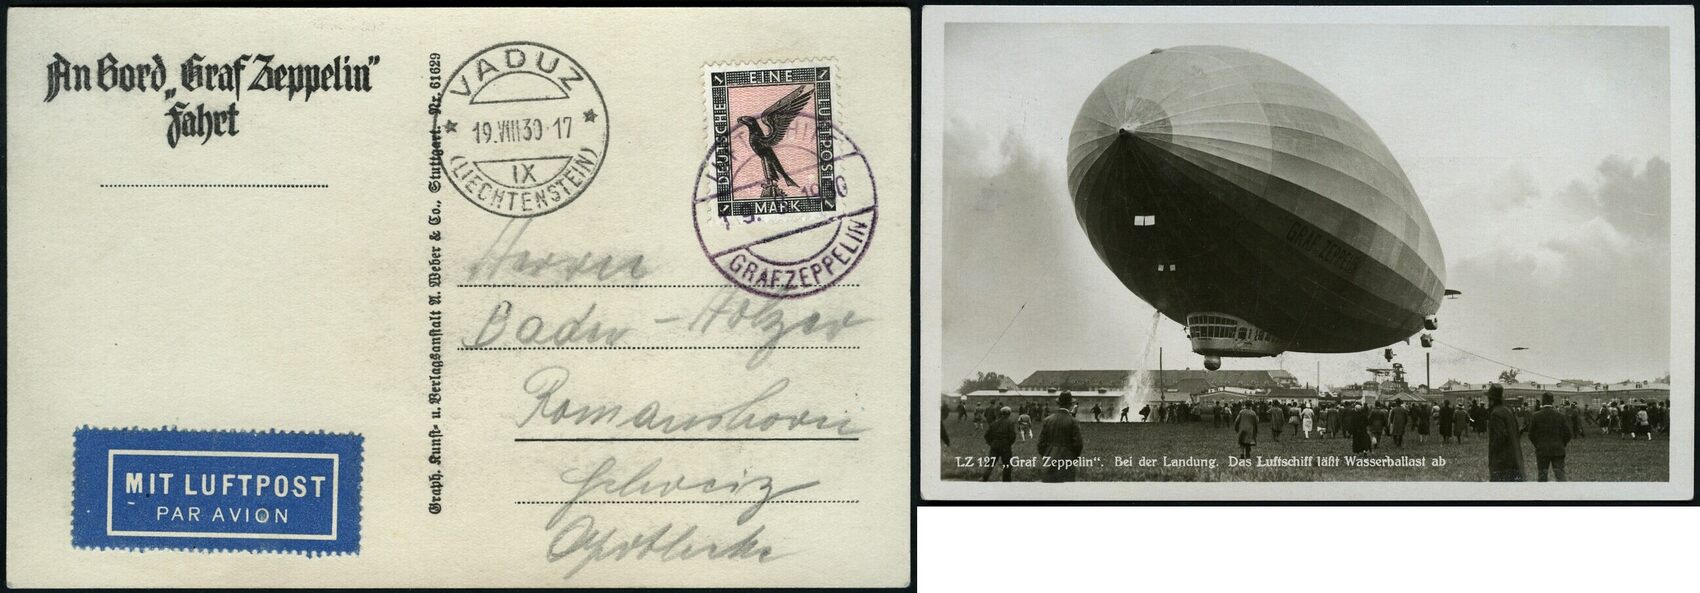 An Bord „Graf Zeppelin“
Fahrt
Graph. Kunst- u. Verlagsanstalt A. Weber & Co., Stuttgart. Nr. 61629
VADUZ
19.VIII30-17
IX
(LIECHTENSTEIN)
1 EINE 1
DEUTSCHE
LUFTPOST
1 MARK 1
GRAF ZEPPELIN
Herrn
Baden-Holzer
Romanshorn
Schweiz
Apotheke
MIT LUFTPOST
PAR AVION
GRAF ZEPPELIN
LZ 127 „Graf Zeppelin“. Bei der Landung. Das Luftschiff läßt Wasserballast ab